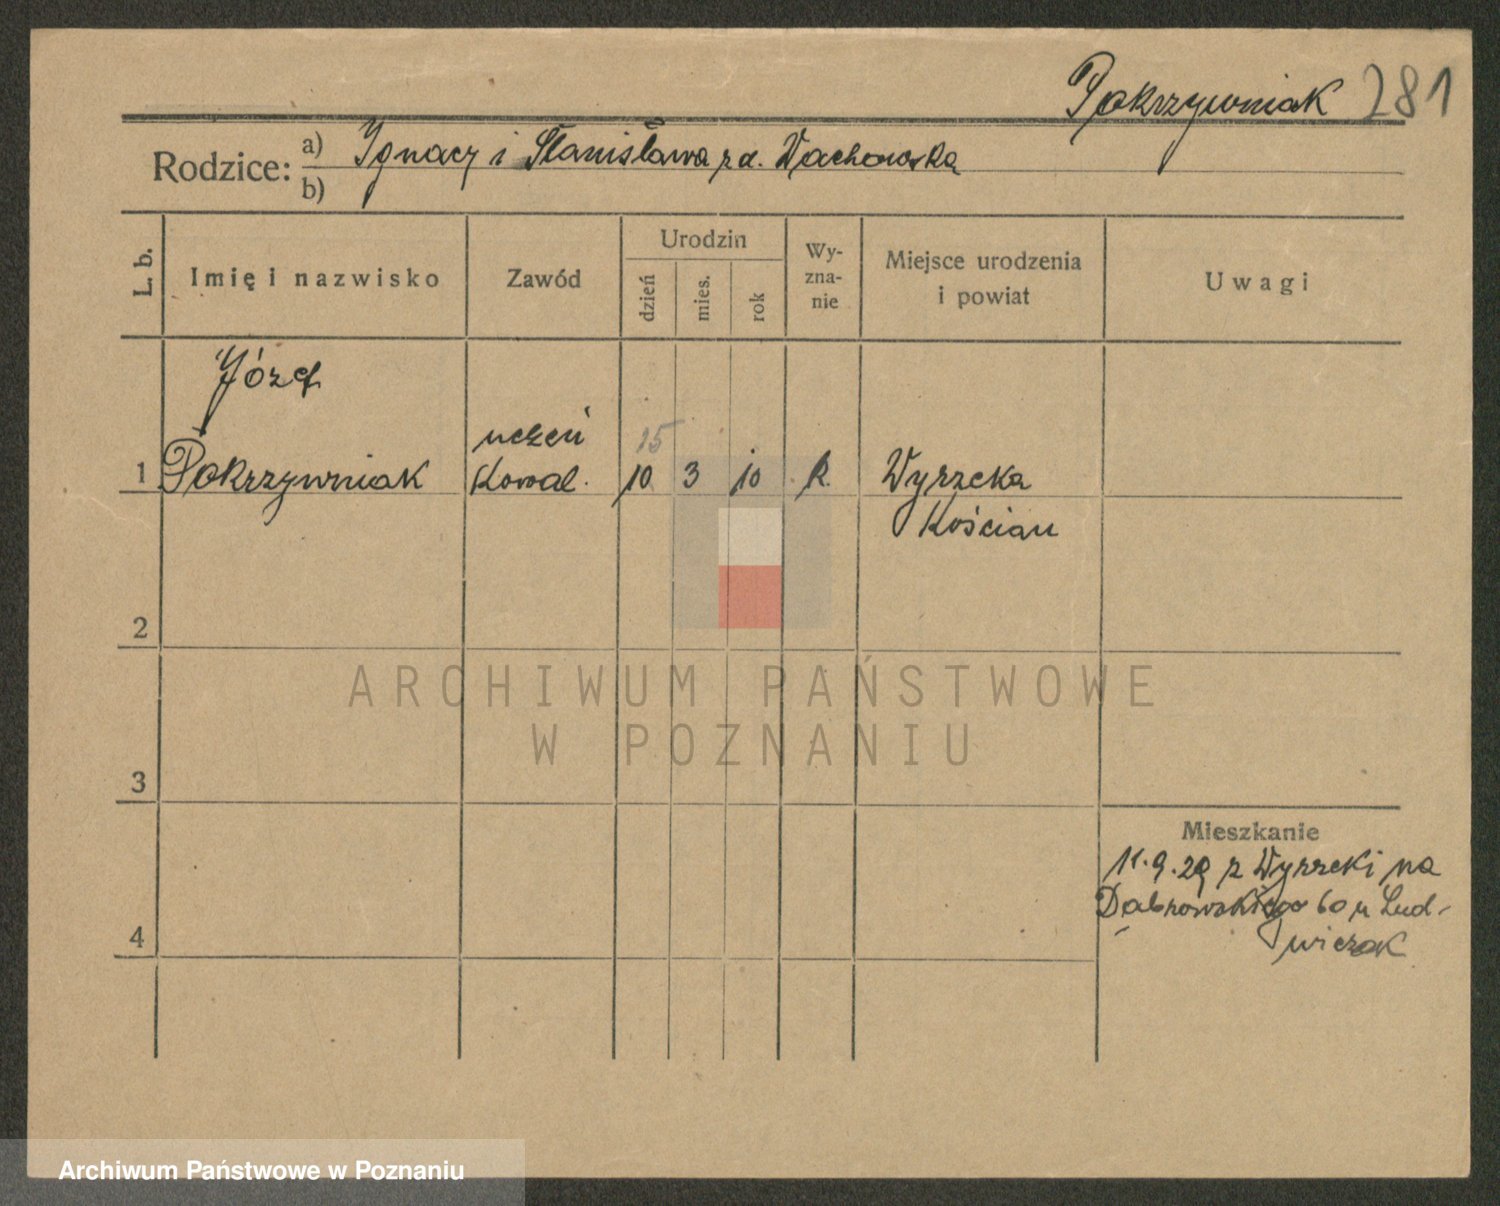 Pokrzywniak 281
Rodzice: a) Ignacy i Stanisława z d. Wachowska
b)
L. b. Imię i nazwisko Zawód Urodzin dzień mies. rok Wy-zna-nie Miejsce urodzenia i powiat Uwagi
Józef
uczeń 15
1 Pokrzywniak Kowal. 10 3 10 R. Wyrzeka
Kościan
2
ARCHIWUM PAŃSTWOWE
W POZNANIU
3
Mieszkanie
11.9.29 z Wyrzeki na
Dąbrowskiego 60 u Lud-
4
wiczak
Archiwum Państwowe w Poznaniu